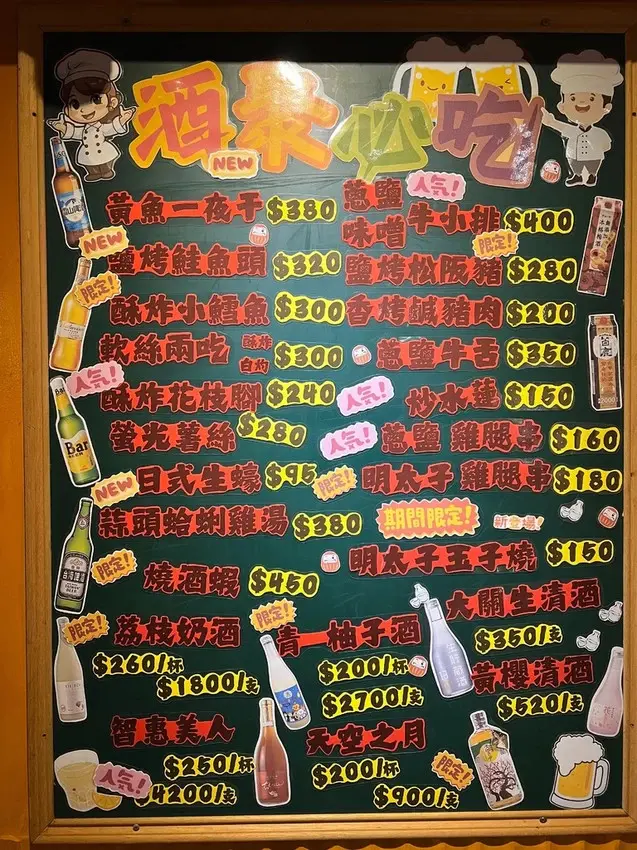 酒泰必吃
NEW
黃魚一夜干 $380
蔥鹽 味噌 牛小排 $400
人気!
NEW
鹽烤鮭魚頭 $320
限定!
鹽烤松阪豬 $280
限定!
酥炸小鱈魚 $300
香烤鹹豬肉 $200
軟絲兩吃 酥炸 白灼 $300
蔥鹽牛舌 $350
人気!
酥炸花枝腳 $240
人気!
炒水蓮 $150
螢光薯絲 $280
人気!
蔥鹽 雞腿串 $160
NEW
日式生蠔 $95
限定!
明太子 雞腿串 $180
蒜頭蛤蜊雞湯 $380
期間限定!
新登場!
限定!
燒酒蝦 $450
明太子玉子燒 $150
限定!
荔枝奶酒
$260/杯
$1800/支
限定!
青一柚子酒
$200/杯
$2700/支
大關生清酒
$350/支
黃櫻清酒
$520/支
智惠美人
$250/杯
人気!
$4200/支
天空之月
$200/杯
$900/支
限定!
Bar
台灣啤酒